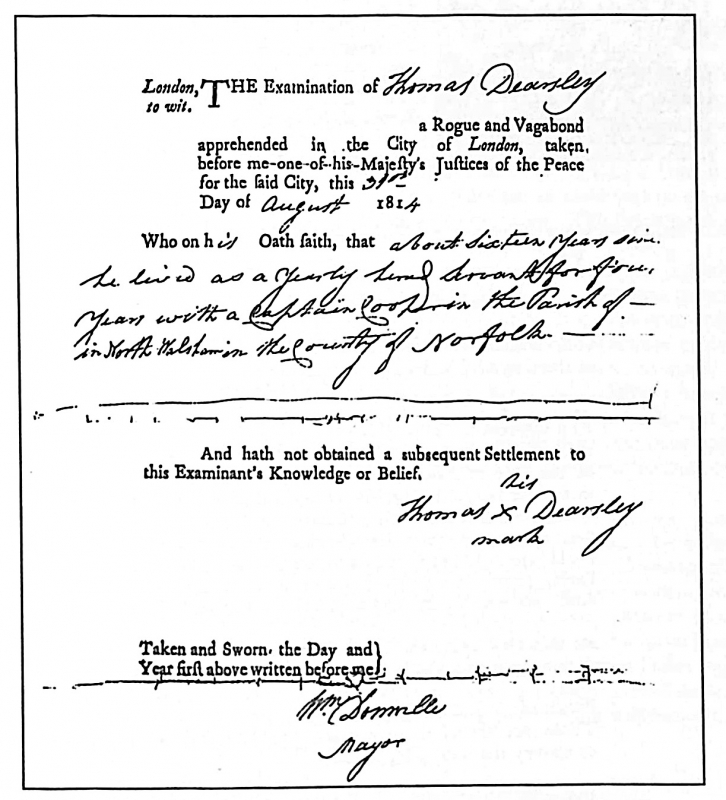 London, THE Examination of Thomas Dearsley
to wit.
a Rogue and Vagabond
apprehended in the City of London, taken,
before me one of his Majeſty's Juſtices of the Peace
for the ſaid City, this 31st
Day of August 1814
Who on his Oath ſaith, that about sixteen Years
he lived as a Yearly hired Servant for
Years with a Captain Cooper in the Parish of —
in North Walsham in the County of Norfolk —
And hath not obtained a subsequent Settlement to
this Examinant's Knowledge or Belief.
his
Thomas X Dearsley
mark
Taken and Sworn the Day and }
Year firſt above written before me
Wm Domville
Mayor